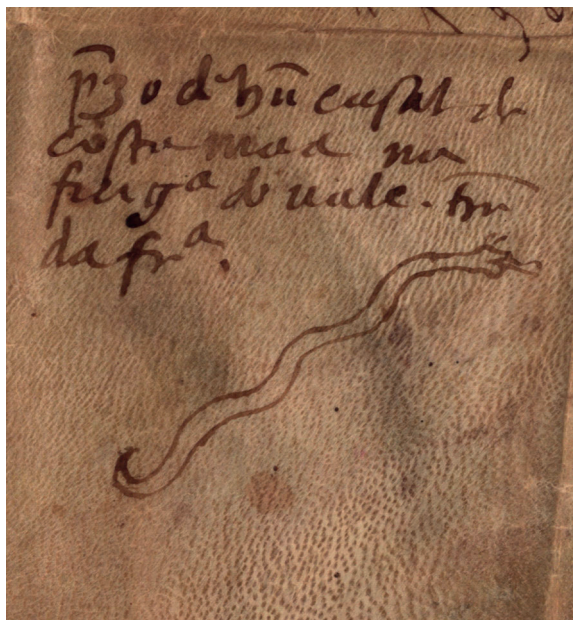 p̃zo d hũ casal de
costa maa na
freigª de uale . tr̃r
da frª.